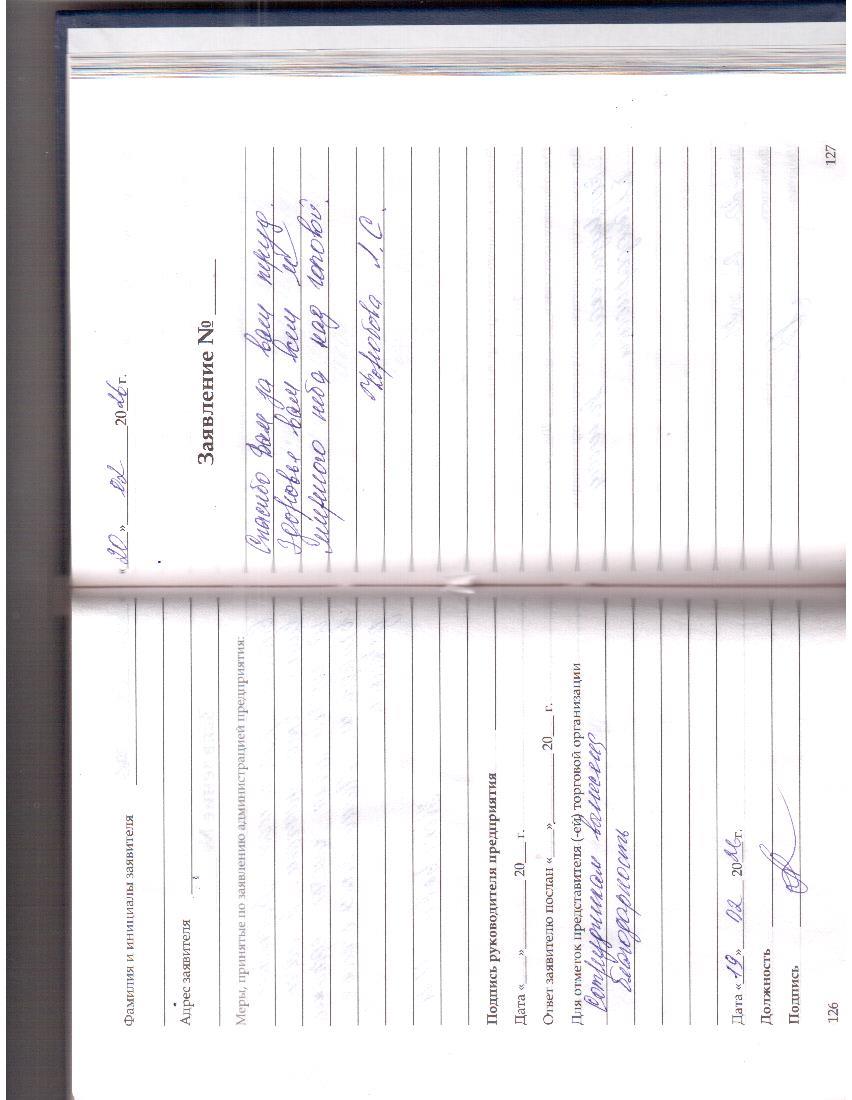 Фамилия и инициалы заявителя
Адрес заявителя
Меры, принятые по заявлению администрацией предприятия:
Подпись руководителя предприятия
Дата «___» ________ 20___ г.
Ответ заявителю послан «___» ________ 20___ г.
Для отметок представителя (-ей) торговой организации
Сотрудникам вынесена
благодарность
Дата « 19 » 02 20 26 г.
Должность
Подпись
126
« 20 » 02 20 26 г.
Заявление № ____
Спасибо Вам за ваш труд.
Здоровья вам всем и
мирного неба над головой.
Л.С.
127